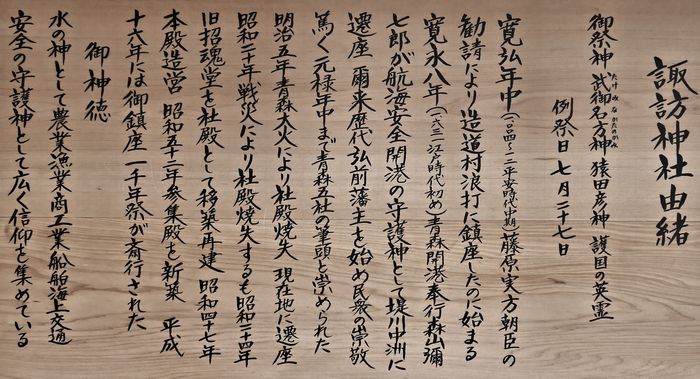 諏訪神社由緒
御祭神 武御名方神 猿田彦神 護国の英霊
たけみなかたのかみ
例祭日 七月二十七日
寛弘年中(一〇〇四-一二平安時代中期)藤原実方朝臣の
勧請により造道村浪打に鎮座したのに始まる
寛永八年(一六三一江戸時代初め)青森開港奉行森山彌
七郎が航海安全開港の守護神として堤川中洲に
遷座 爾来歴代弘前藩主を始め民衆の崇敬
篤く元禄年中まで青森五社の筆頭と崇められた
明治五年青森大火により社殿焼失 現在地に遷座
昭和二十年戦災により社殿焼失するも昭和二十四年
旧招魂堂を社殿として移築再建 昭和四十七年
本殿造営 昭和五十二年参集殿を新築 平成
十六年には御鎮座一千年祭が斎行された
御神徳
水の神として農業漁業商工業船舶海上交通
安全の守護神として広く信仰を集めている